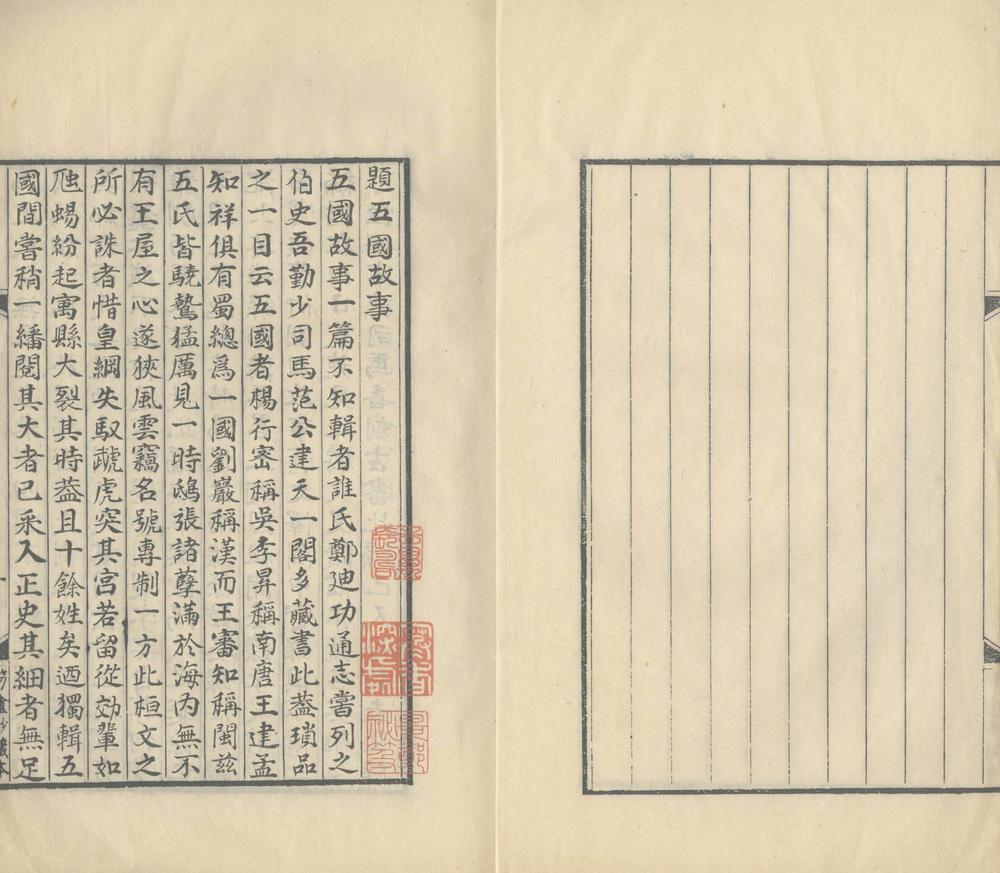 題五國故事
五國故事一篇不知輯者誰氏鄭廸功通志嘗列之
伯史吾勤少司馬范公建天一閣多藏書此葢瑣品
之一目云五國者楊行宻稱吳李昇稱南唐王建孟
知祥俱有蜀總爲一國劉巖稱漢而王審知稱閩兹
五氏皆驍鷙猛厲見一時鴟張諸孽滿於海內無不
有王屋之心遂狹風雲竊名號專制一方此桓文之
所必誅者惜皇綱失馭虓虎突其宮若留從効輩如
虺蜴紛起寓縣大裂其時葢且十餘姓矣迺獨輯五
國間嘗稍一繙閱其大者已采入正史其細者無足